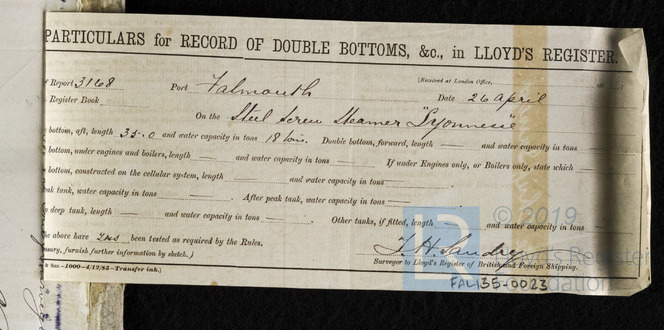 PARTICULARS for RECORD OF DOUBLE BOTTOMS, &c., in LLOYD'S REGISTER.
(Received at London Office,
Report 3168 Port Falmouth Date 26 April
Register Book
On the Steel Screw Steamer
bottom, aft, length 35.0 and water capacity in tons 18 tons. Double bottom, forward, length — and water capacity in tons
bottom, under engines and boilers, length — and water capacity in tons — If under Engines only, or Boilers only, state which
bottom, constructed on the cellular system, length — and water capacity in tons
tank, water capacity in tons — . After peak tank, water capacity in tons — .
deep tank, length — and water capacity in tons — . Other tanks, if fitted, length — and water capacity in tons
above have been tested as required by the Rules.
furnish further information by sketch.)
Surveyor to Lloyd's Register of British and Foreign Shipping.
1000—4/12/85—Transfer ink.)
FAL135-0023
© 2019